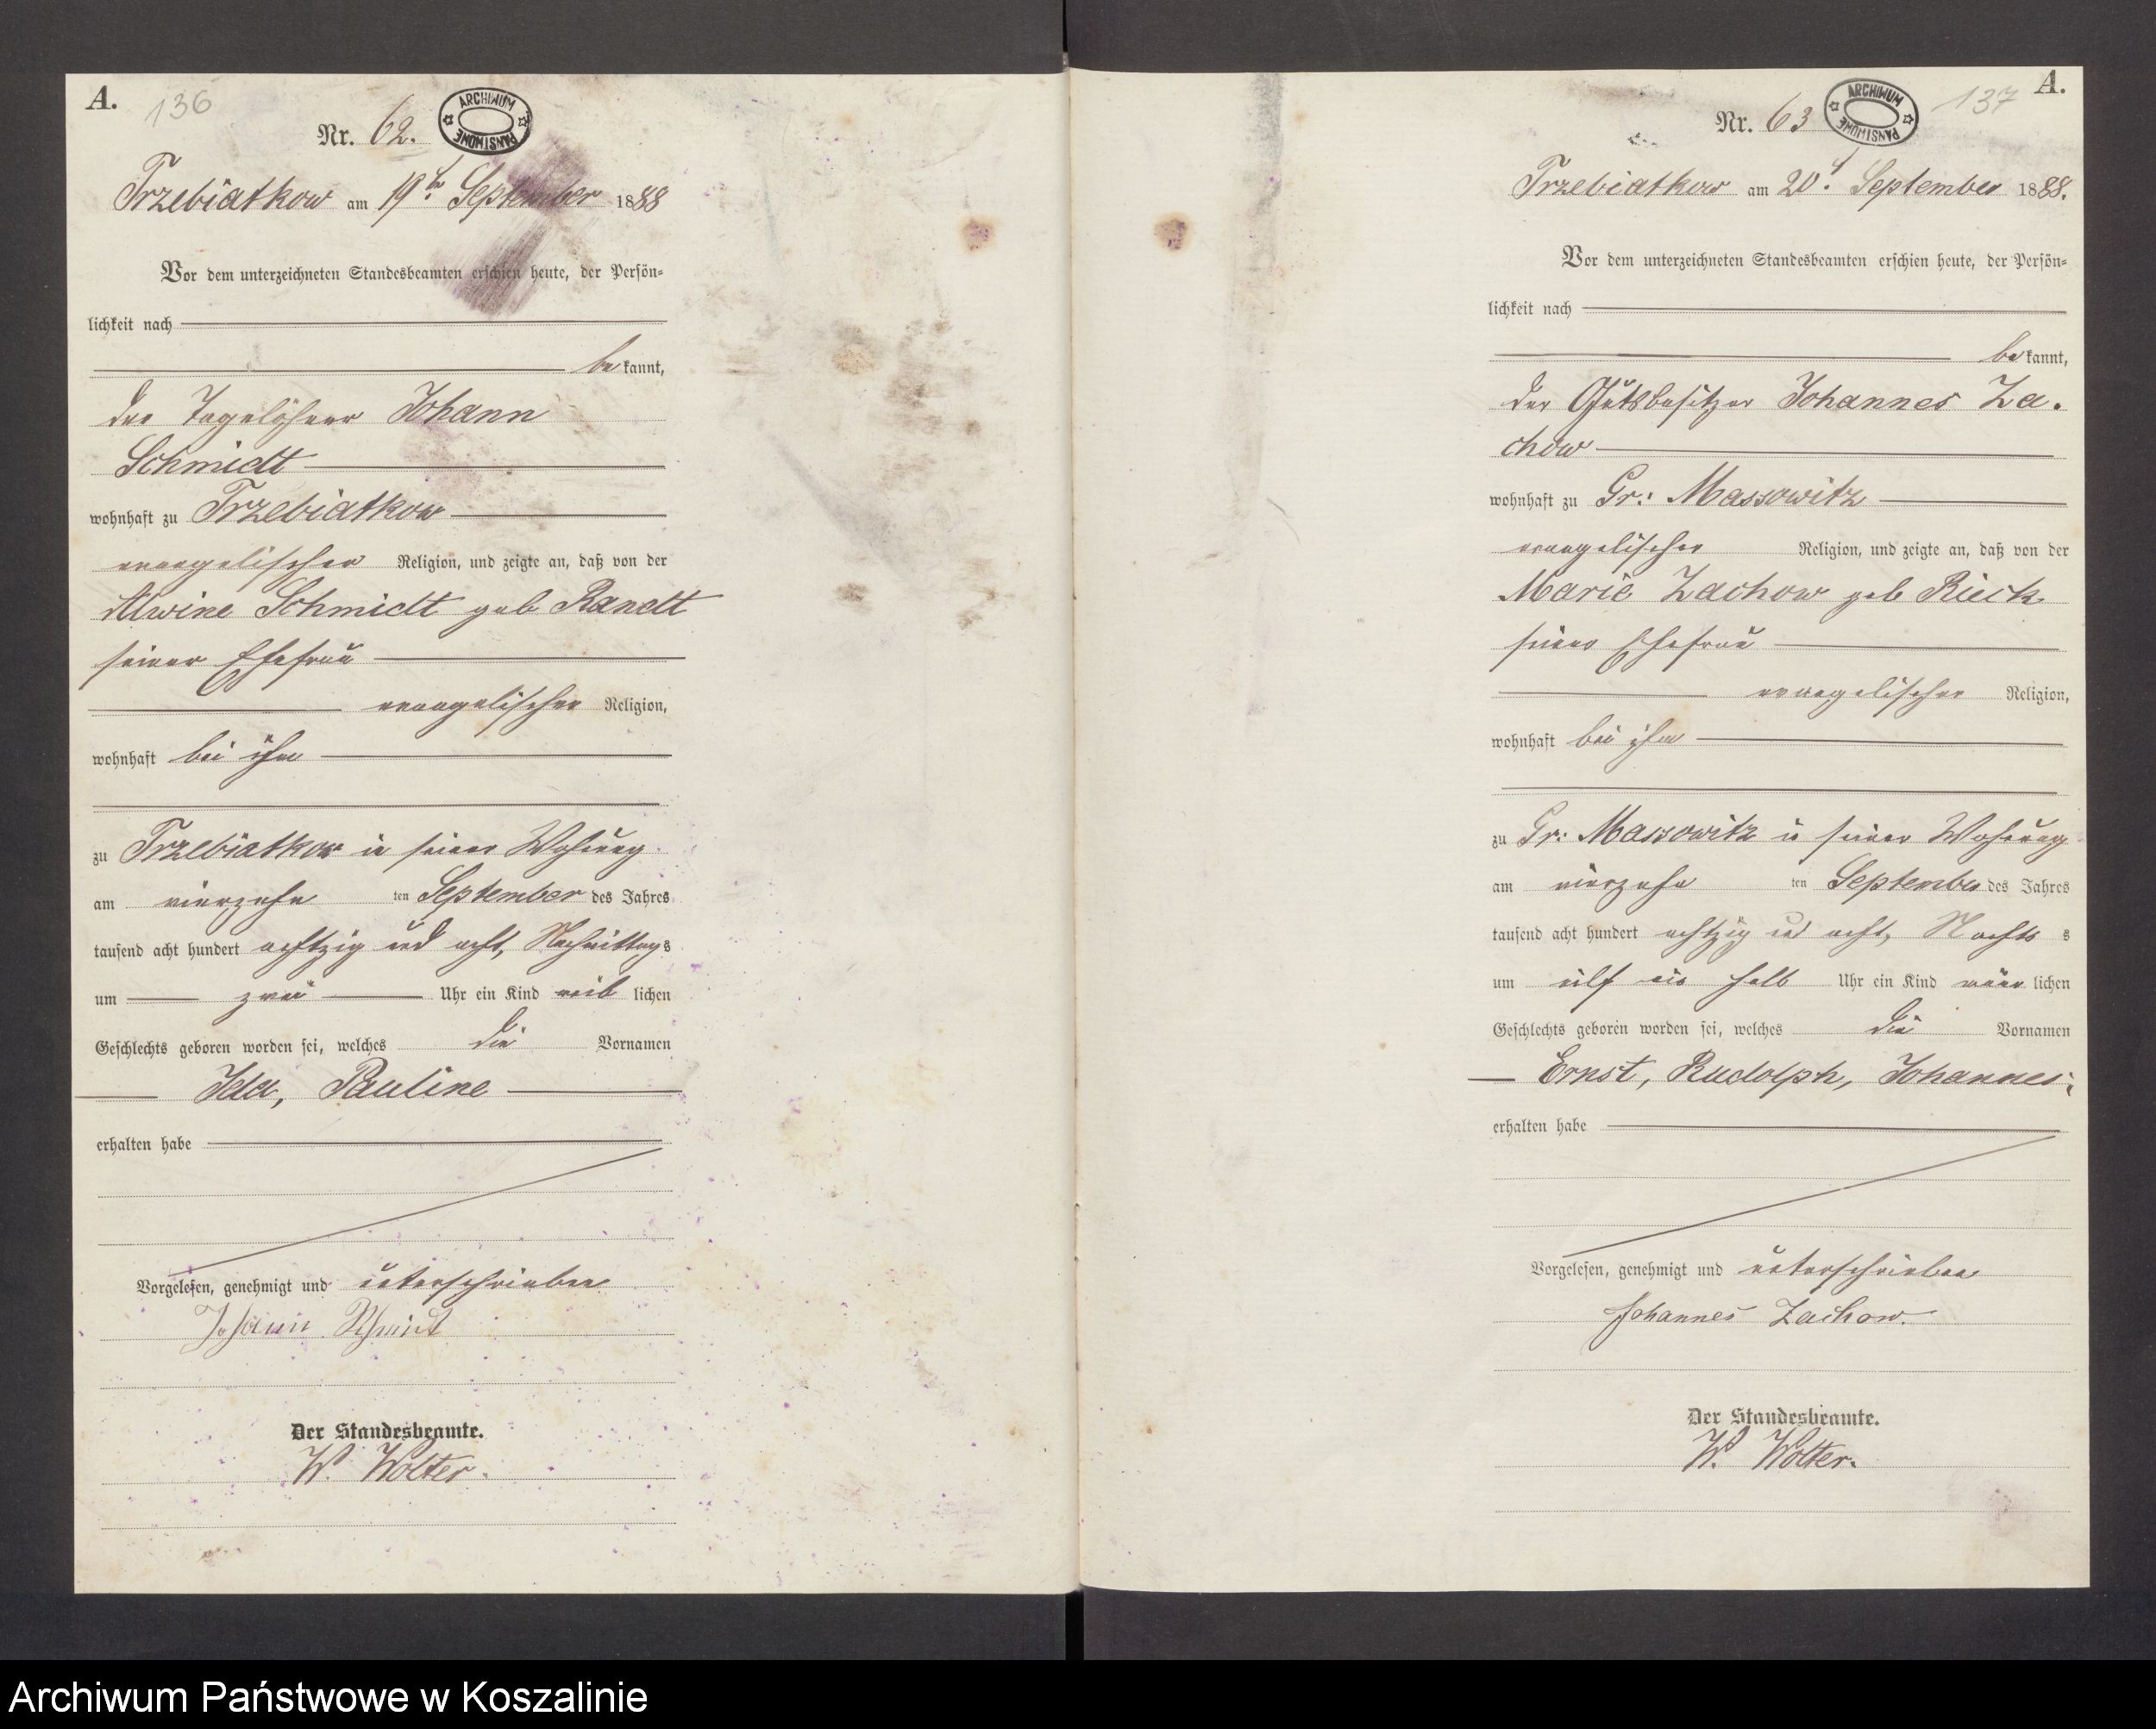 A.
136
Nr. 62.
ARCHIWUM PAŃSTWOWE
Trzebiatkow am 19ten September 1888
Vor dem unterzeichneten Standesbeamten erschien heute, der Persön-
lichkeit nach
be kannt,
der Tagelöhner Johann
Schmidt
wohnhaft zu Trzebiatkow
evangelischer Religion, und zeigte an, daß von der
Alwine Schmidt geb Randt
seiner Ehefrau
evangelischer Religion,
wohnhaft bei ihm
zu Trzebiatkow in seiner Wohnung
am vierzehn ten September des Jahres
tausend acht hundert achtzig und acht, Nachmittags
um zwei Uhr ein Kind weib lichen
Geschlechts geboren worden sei, welches die Vornamen
Ida, Pauline
erhalten habe
Vorgelesen, genehmigt und unterschrieben
Johann Schmidt
Der Standesbeamte.
W. Wolter.
A.
137
Nr. 63
ARCHIWUM PAŃSTWOWE
Trzebiatkow am 20t. September 1888.
Vor dem unterzeichneten Standesbeamten erschien heute, der Persön-
lichkeit nach
be kannt,
der Gutsbesitzer Johannes Za-
chow
wohnhaft zu Gr: Massowitz
evangelischer Religion, und zeigte an, daß von der
Marie Zachow geb Rieck
seiner Ehefrau
evangelischer Religion,
wohnhaft bei ihm
zu Gr: Massowitz in seiner Wohnung
am vierzehn ten September des Jahres
tausend acht hundert achtzig und acht, Nachts s
um eilf ein halb Uhr ein Kind männ lichen
Geschlechts geboren worden sei, welches die Vornamen
Ernst, Rudolph, Johannes,
erhalten habe
Vorgelesen, genehmigt und unterschrieben
Johannes Zachow.
Der Standesbeamte.
W. Wolter.
Archiwum Państwowe w Koszalinie